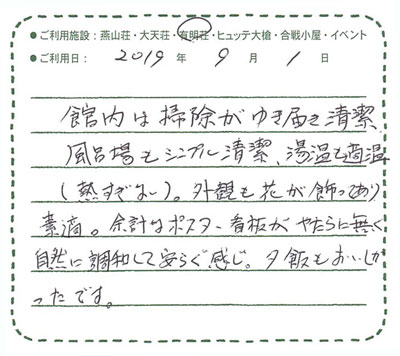 ●ご利用施設：燕山荘・大天荘・有明荘・ヒュッテ大槍・合戦小屋・イベント
●ご利用日： 2019 年 9 月 1 日
館内は掃除がゆき届き清潔、
風呂場もシンプル清潔、湯温も適温
(熱すぎない)。外観も花が飾ってあり
素適。余計なポスター、看板がやたらに無く
自然に調和して安らぐ感じ。夕飯もおいしか
ったです。